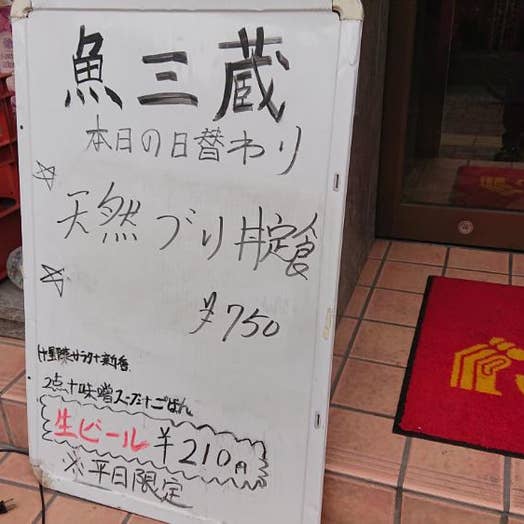 魚三蔵
本日の日替わり
☆
天然 ブリ丼定食
☆
¥750
サラダ+新香
2点+味噌スープ+ごはん
生ビール ¥210円
※平日限定